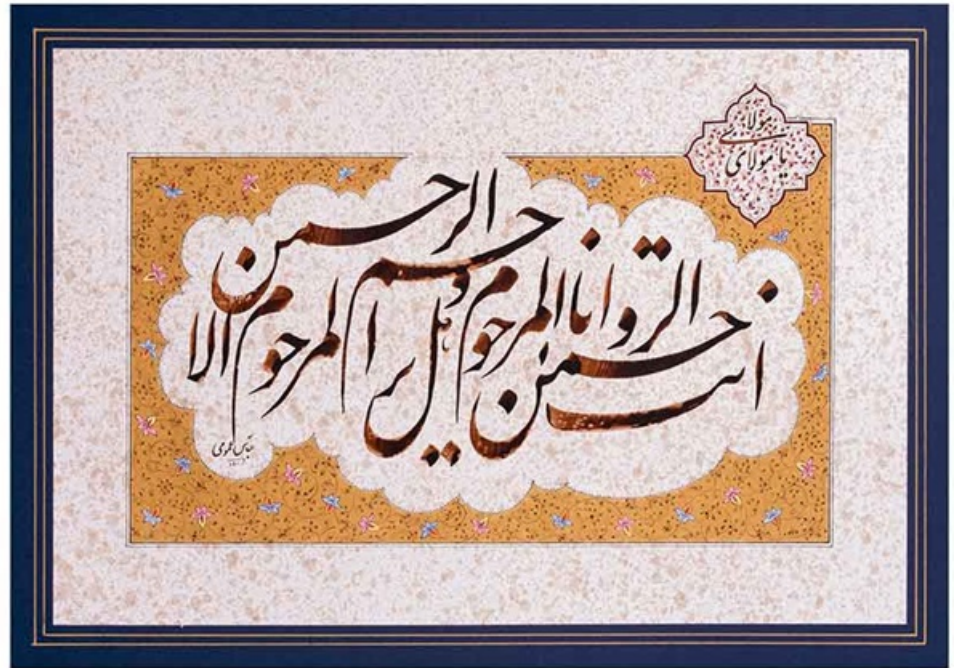 مولای
یا مولای
انت الرحمن و انا المرحوم و هل یرحم المرحوم الا الرحمن